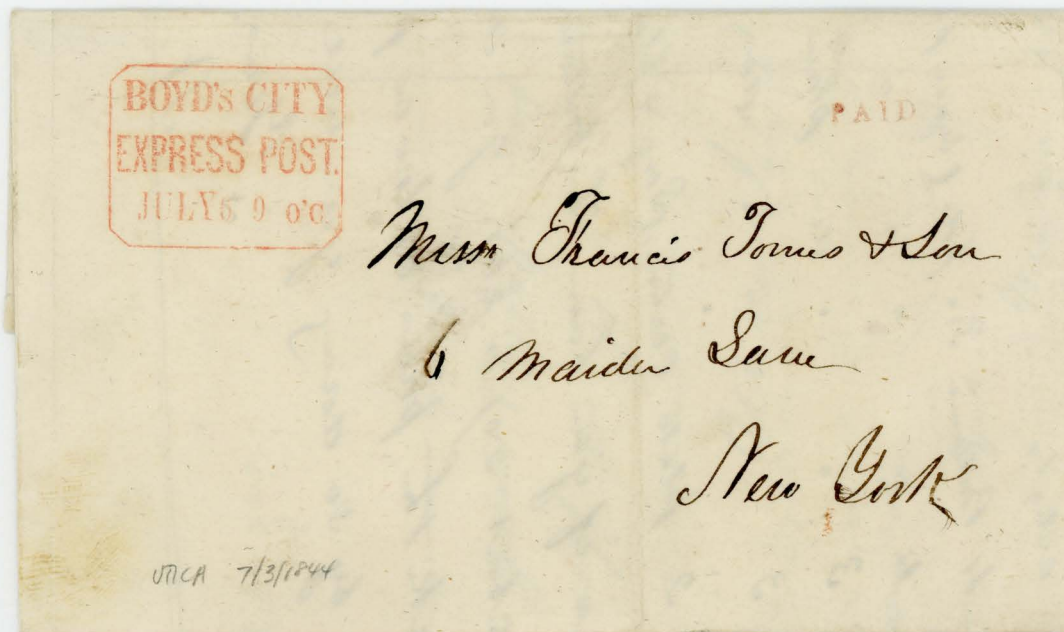 BOYD's CITY
EXPRESS POST.
JULY 5 9 o'c.
PAID
Messrs Francis Tomes & Son
6 Maiden Lane
New York
UTICA 7/3/1844